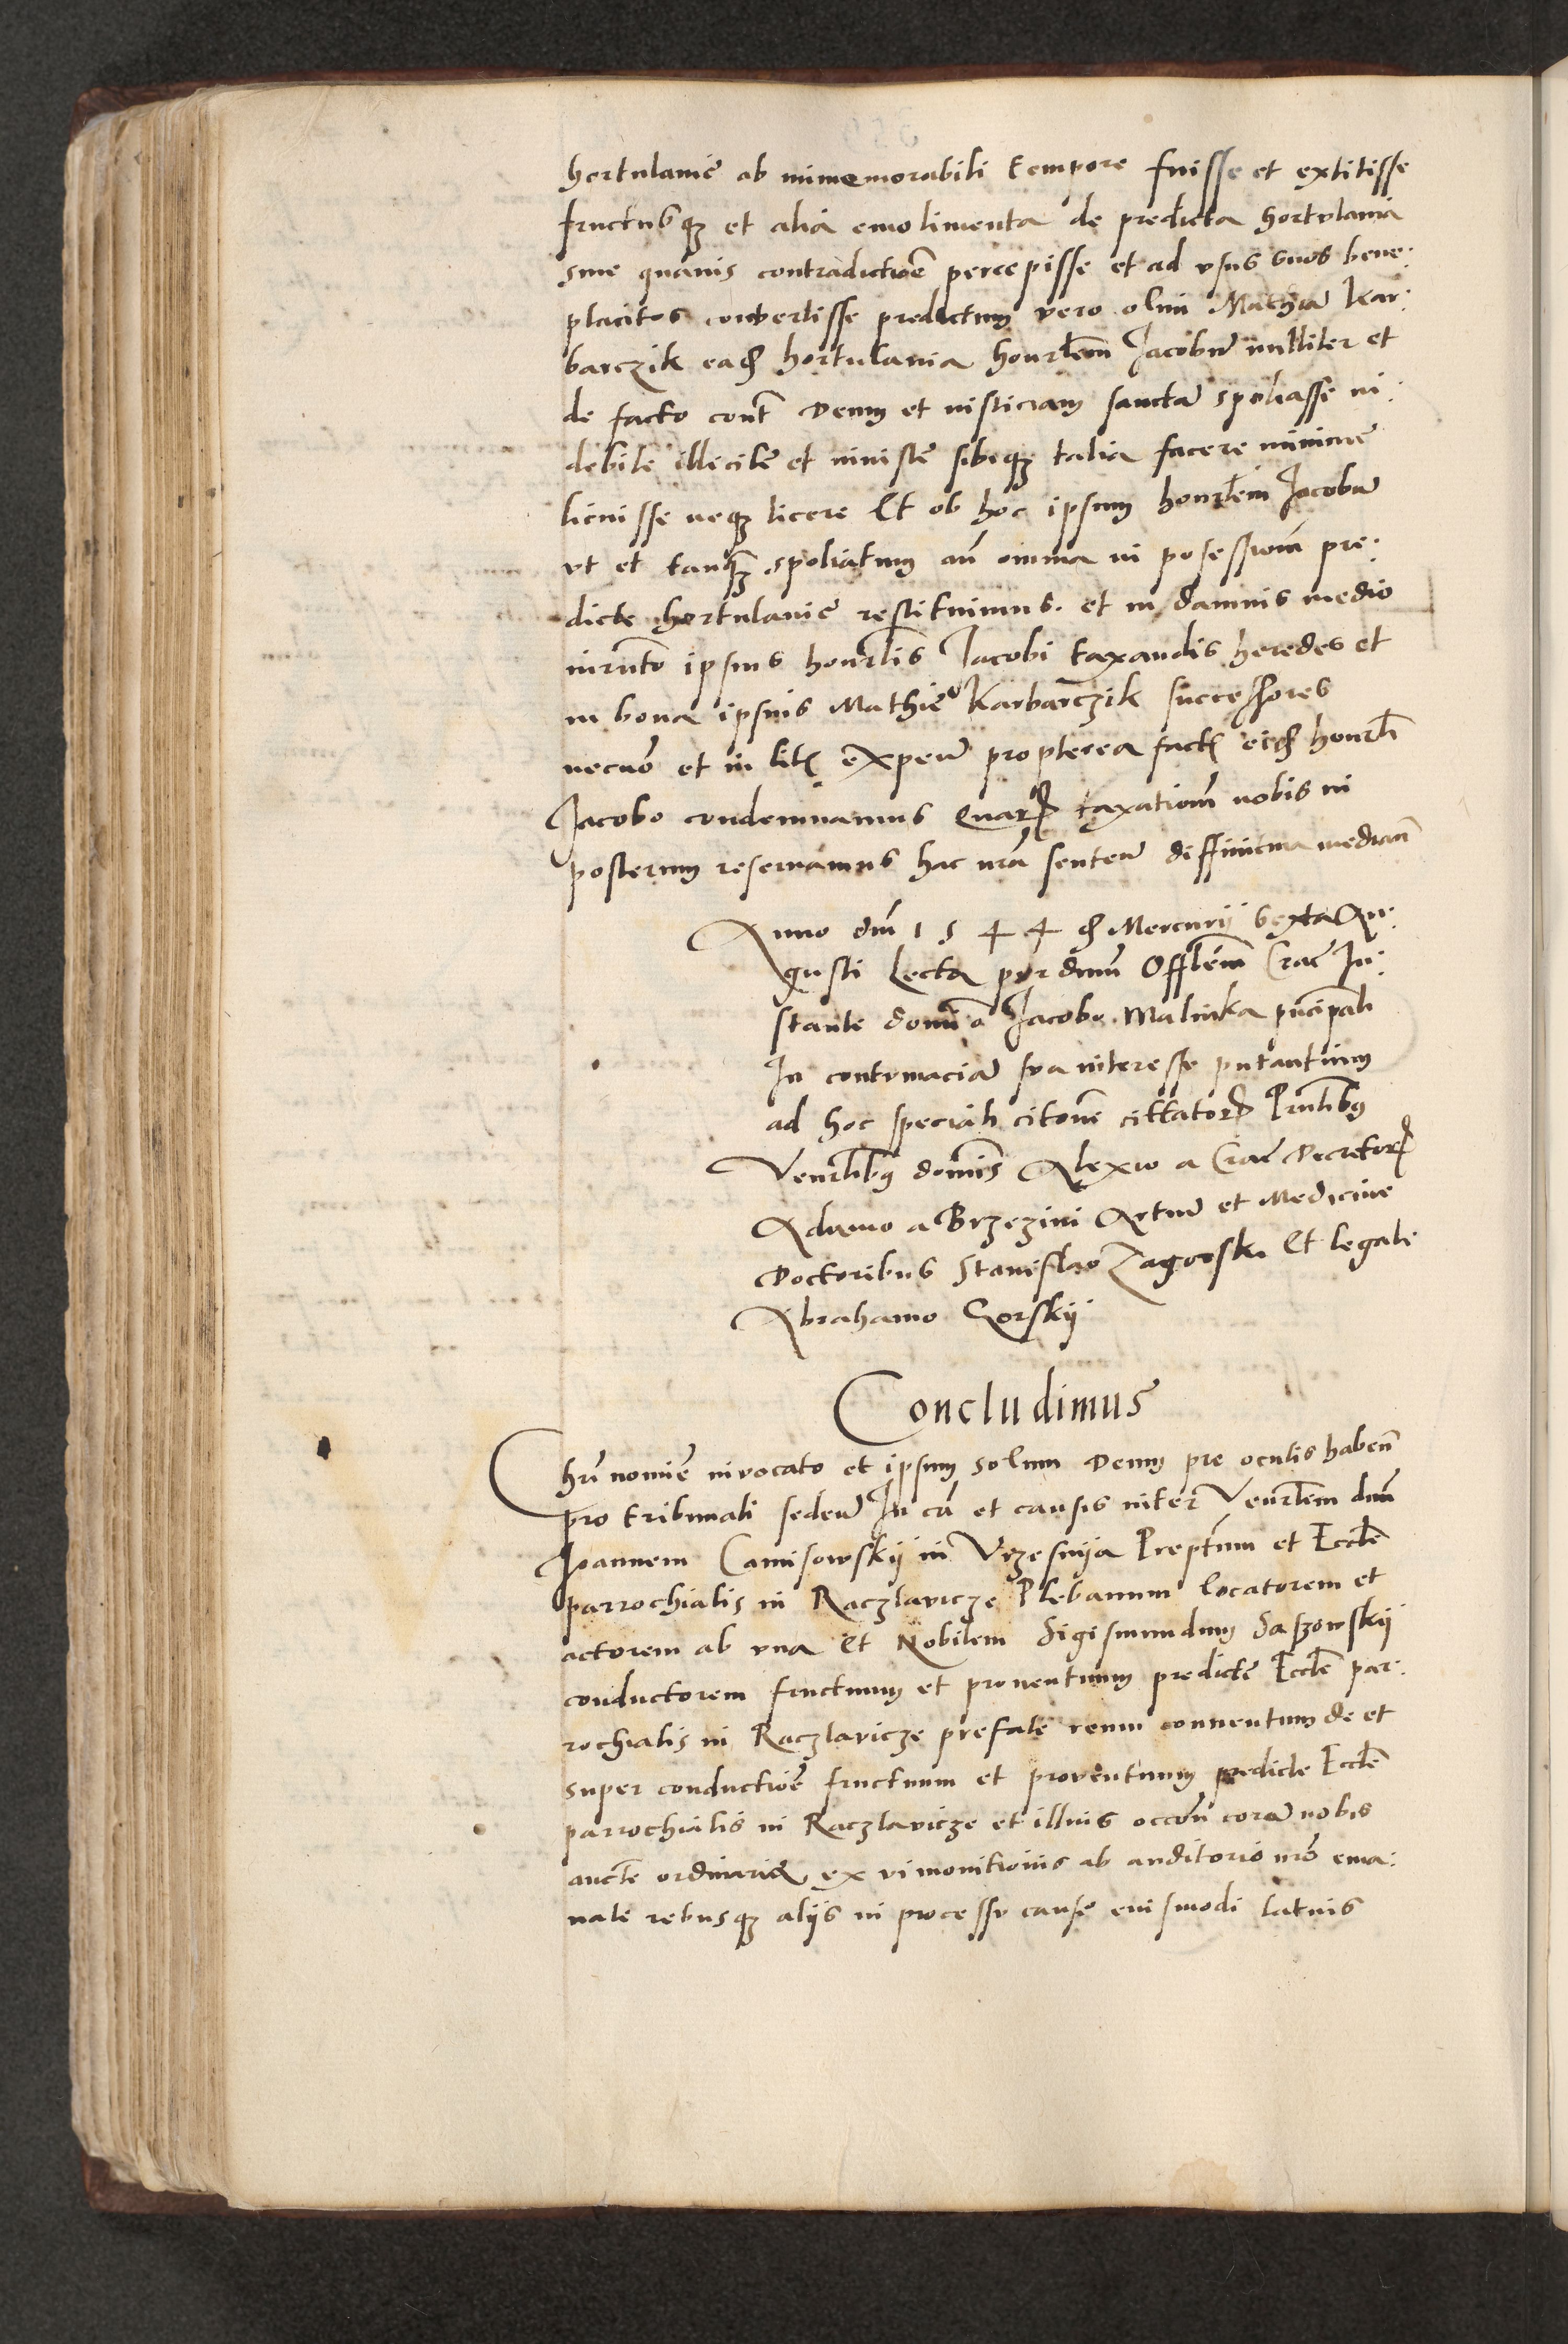 hortulanie ab immemorabili tempore fuisse et extitisse
fructusqz et alia emolimenta de predicta hortulania
sine quavis contradictioē percepisse et ad vsus suos bene:
placitos convertisse predictum vero olim Mathiā Kar:
barczik eadꝫ hortulania honorblem Jacobū nulliter et
de facto cont Deum et iusticiam sanctā spoliasse in:
debite illicite et iniuste sibiqz talia facere minime
licuisse neqz licere Et ob hoc ipsum honorblem Jacobū
vt et tanqz spoliatum an omnia in possessionē pre:
dicte hortulanie restituimus. et in damnis medio
iurnto ipsius honorblis Jacobi taxandis heredes et
in bona ipsius Mathie Karbarczik successores
necnō et in litis expen propterea factis eidꝫ honorbli
Jacobo condemnamus Quarꝝ taxationē nobis in
posterum reservamus hac nrā senten diffinitiva median
Anno dni 1544 die Mercurii sexta Au:
gusti Lecta per dnum Offlem Crac In:
stante domīo Jacobo Malinka principali
In contumaciā sva interesse putantium
ad hoc speciali citone cittatorꝝ Pntibus
Venrlibus dominis Alexio a Crac Decretorꝝ
Adamo a Brzezini Artiū et Medicine
Doctoribus Stanislao Zagorski Et legali
Abrahamo Gorskij
Concludimus
Chri nomīe invocato et ipsum solum Deum pre oculis haben
pro tribunali seden In ca et causis inter Venrblem dnū
Joannem Camisowskij in Vrzesnija Preptum et Eccle
parrochialis in Raczlavicze Plebanum locatorem et
actorem ab vna Et Nobilem Sigismundum Saszowskij
conductorem fructuum et proventuum predicte Eccle par:
rochialis in Raczlavicze prefate reum conventum de et
super conductioē fructuum et proventuum predicte Eccle
parrochialis in Raczlavicze et illius occōn corā nobis
aucte ordinaria ex vi monitionis ab auditorio nrō ema:
nate rebusqz alijs in processv cause huiusmodi latius